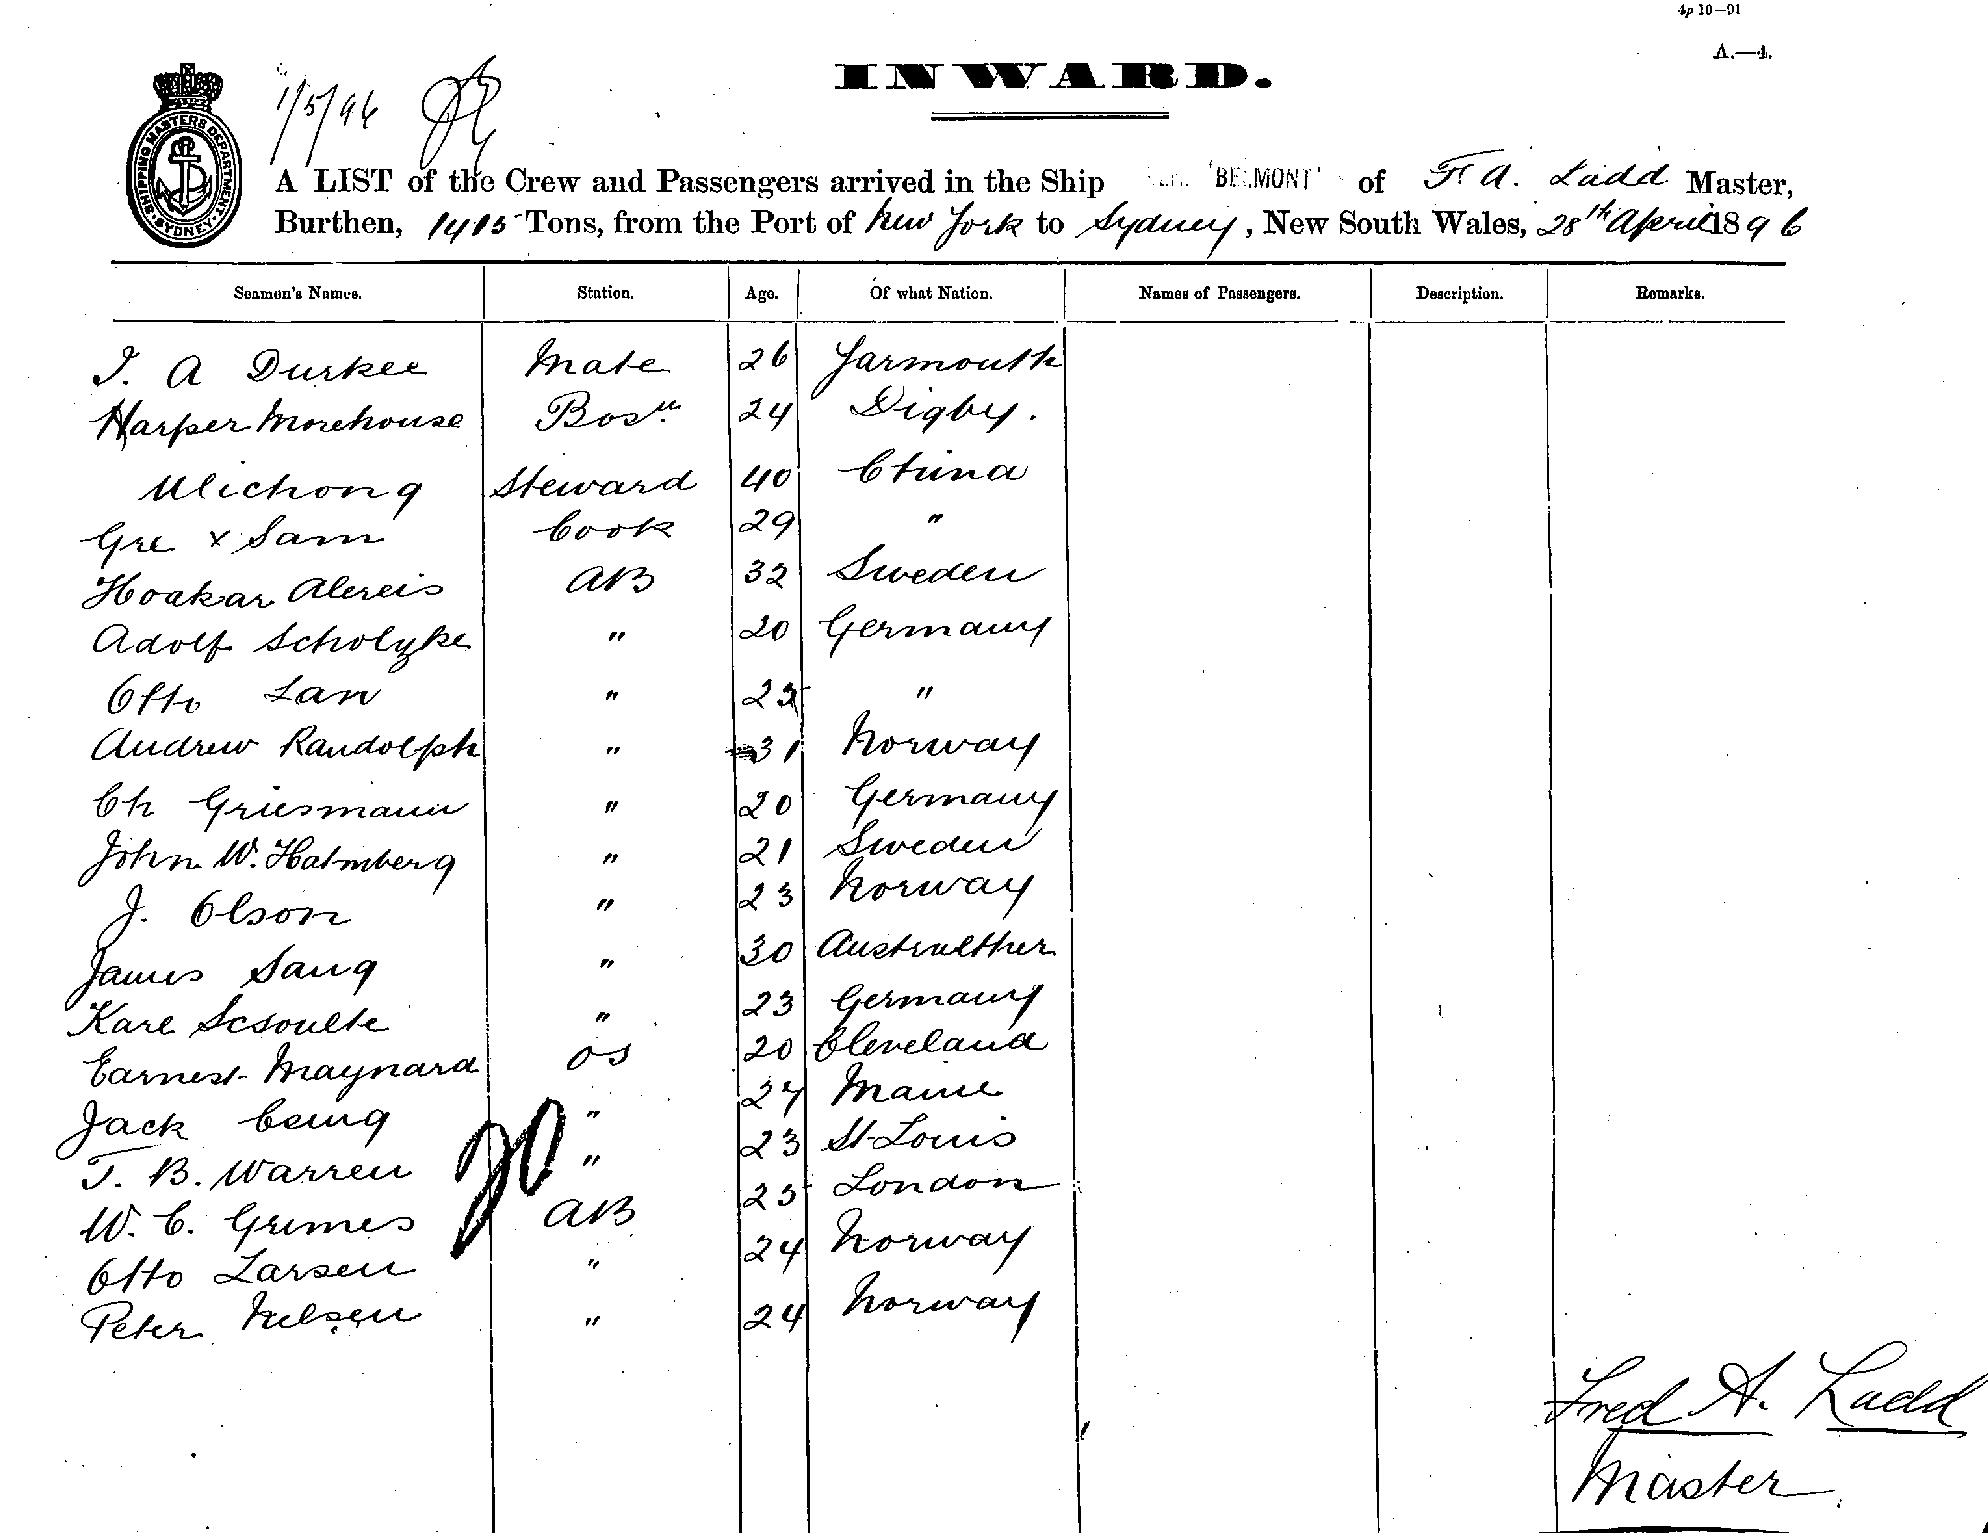 4p 10—91
A.—4.
INWARD.
1/5/96
SHIPPING MASTERS DEPARTMENT SYDNEY
A LIST of the Crew and Passengers arrived in the Ship "BELMONT" of F. A. Ladd Master,
Burthen, 1415 Tons, from the Port of New York to Sydney, New South Wales, 28th April 1896
Seamen's Names. Station. Age. Of what Nation. Names of Passengers. Description. Remarks.
J. A Durkee Mate 26 Yarmouth
Harper Morehouse Bosn 24 Digby.
Wichong Steward 40 China
Gre x Sam Cook 29 "
Hoakar Alereis AB 32 Sweden
Adolf Scholyke " 20 Germany
Otto Lan " 25 "
Andrew Randolph " 31 Norway
Ch Griesmann " 20 Germany
John W. Halmberg " 21 Sweden
J. Olson " 23 Norway
James Sang " 30 Austruther
Karl Scsoulte " 23 Germany
Earnest Maynard OS 20 Cleveland
Jack " 24 Maine
T. B. Warren " 23 St Louis
W. C. Grimes AB 25 London
Otto Larsen " 24 Norway
Peter Nelsen " 24 Norway
20
Fred A. Ladd
Master